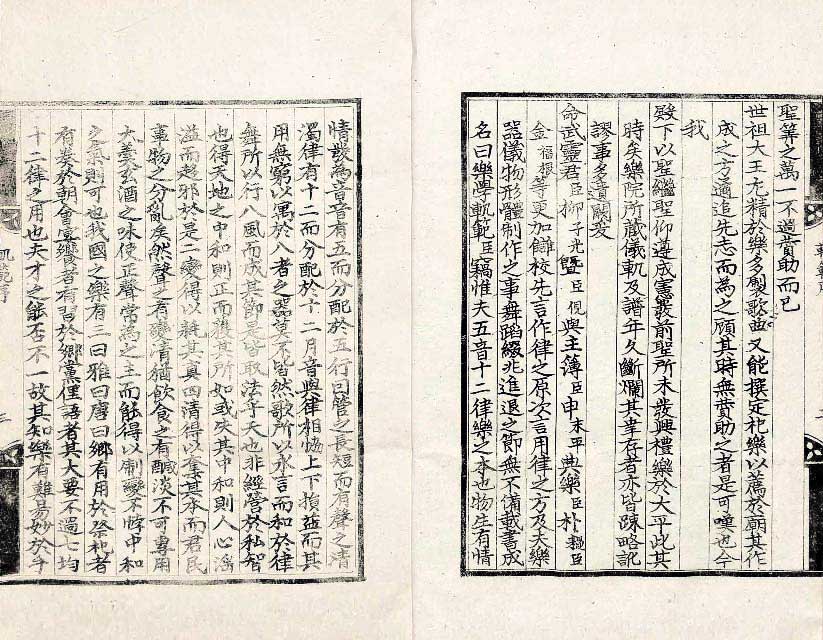 聖筭之萬一不過賛助而已
世祖大王尤精於樂多製歌曲又能撰定祀樂以薦於朝其作
成之方適追先志而爲之顧其時無賛助之者是可嘆也今
我
殿下以聖繼聖仰遵成憲發前聖所未發興禮樂於大平此其
時矣樂院所藏儀軌及譜年久斷爛其幸存者亦皆踈略訛
謬事多遺闕爰
命武靈君臣柳子光暨臣俔與主薄臣申末平典樂臣朴臣
金福根等更加讎校先言作律之原次言用律之方及夫樂
器儀物形體制作之事舞蹈綴兆進退之節無不備載書成
名曰樂學軌範臣竊惟夫五音十二律樂之本也物生有情
情發爲音音有五而分配於五行曰管之長短而有聲之清
濁律有十二而分配於十二月音與律相恊上下損益而其
用無窮以寓於八者之器莫不皆然歌所以永言而和於律
舞所以行八風而成其節是皆取法乎天也非經營於私智
也得天地之中和則正而獲其所如或失其中和則人心滛
溢而趍邪於是二變得以耗其真四清得以奪其本而君民
事物之分亂矣然聲之有變清猶飲食之有醎淡不可專用
大羹玄酒之味使正聲常爲之主而能得以制變不悖中和
之氣則可也我國之樂有三曰雅曰唐曰鄉有用於祭祀者
有奏於朝會宴饗者有習於鄉黨俚語者其大要不過七均
十二律之用也夫才之能否不一故其知樂有難易妙於手
軌範序
三